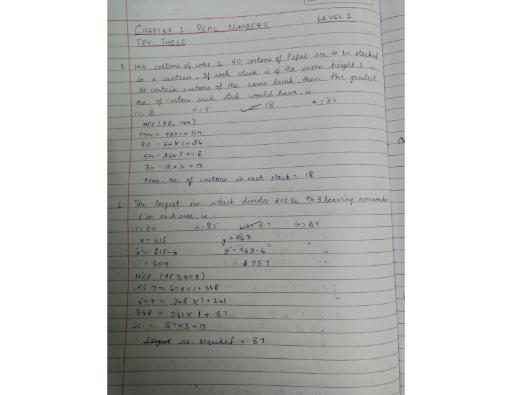 CHAPTER 1 REAL NUMBERS
LEVEL 1
TRY THESE
1. 144 cartons of coke & 90 cartons of Pepsi are to be stacked
in a canteen. If each stack is of the same height & is
to contain cartons of the same drink, then the greatest
no. of cartons each stack would have is
18
HCF (90, 144)
144 = 90x1+54
90 = 54x1+36
54 = 36x1+18
36 = 18x2+0
Max. no. of cartons in each stack = 18
2. The largest no. which divides 615 & 963 leaving remainder
6 in each case, is
85 87 89
x = 615 y = 963
x' = 615-6 y' = 963-6
= 609 957
HCF (957, 609)
957 = 609x1+348
609 = 348x1+261
348 = 261x1+87
261 = 87x3+0
no. required = 87